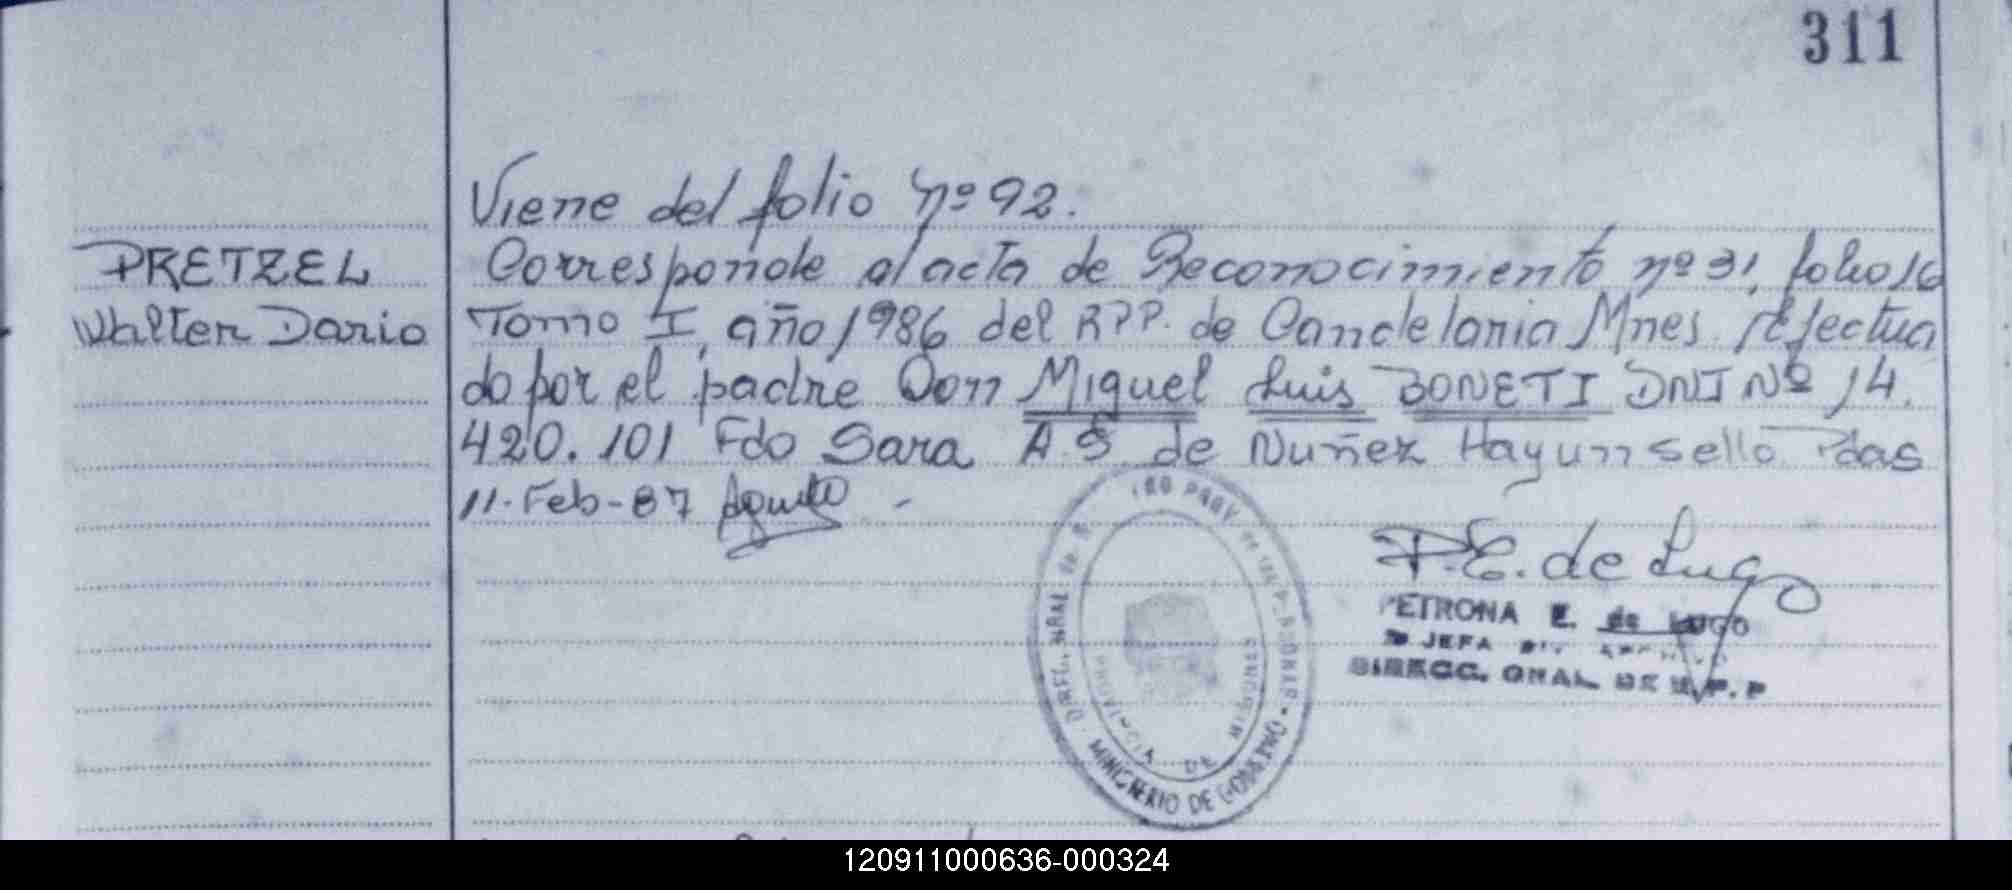 311
Viene del folio nº 92.
PRETZEL
Walter Dario
Corresponde al acta de Reconocimiento nº 31, folio 16
Tomo I, año 1986 del RPP. de Candelaria Mnes. efectua
do por el padre Don Miguel Luis BONETI DNI Nº 14.
420.101 Fdo Sara A.S de Nuñez Hay un sello Pdas
11-Feb-87
P.E. de Lugo
PETRONA E. de LUGO
JEFA DIV ARCHIVO
DIRECC. GRAL. DE R.P.P
PROVINCIA DE MISIONES
MINISTERIO DE GOBIERNO
120911000636-000324